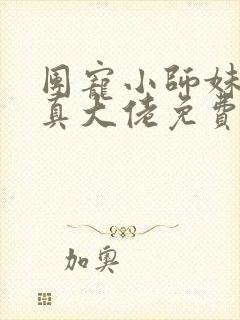 团寵小師妹
真大佬免費
加奧